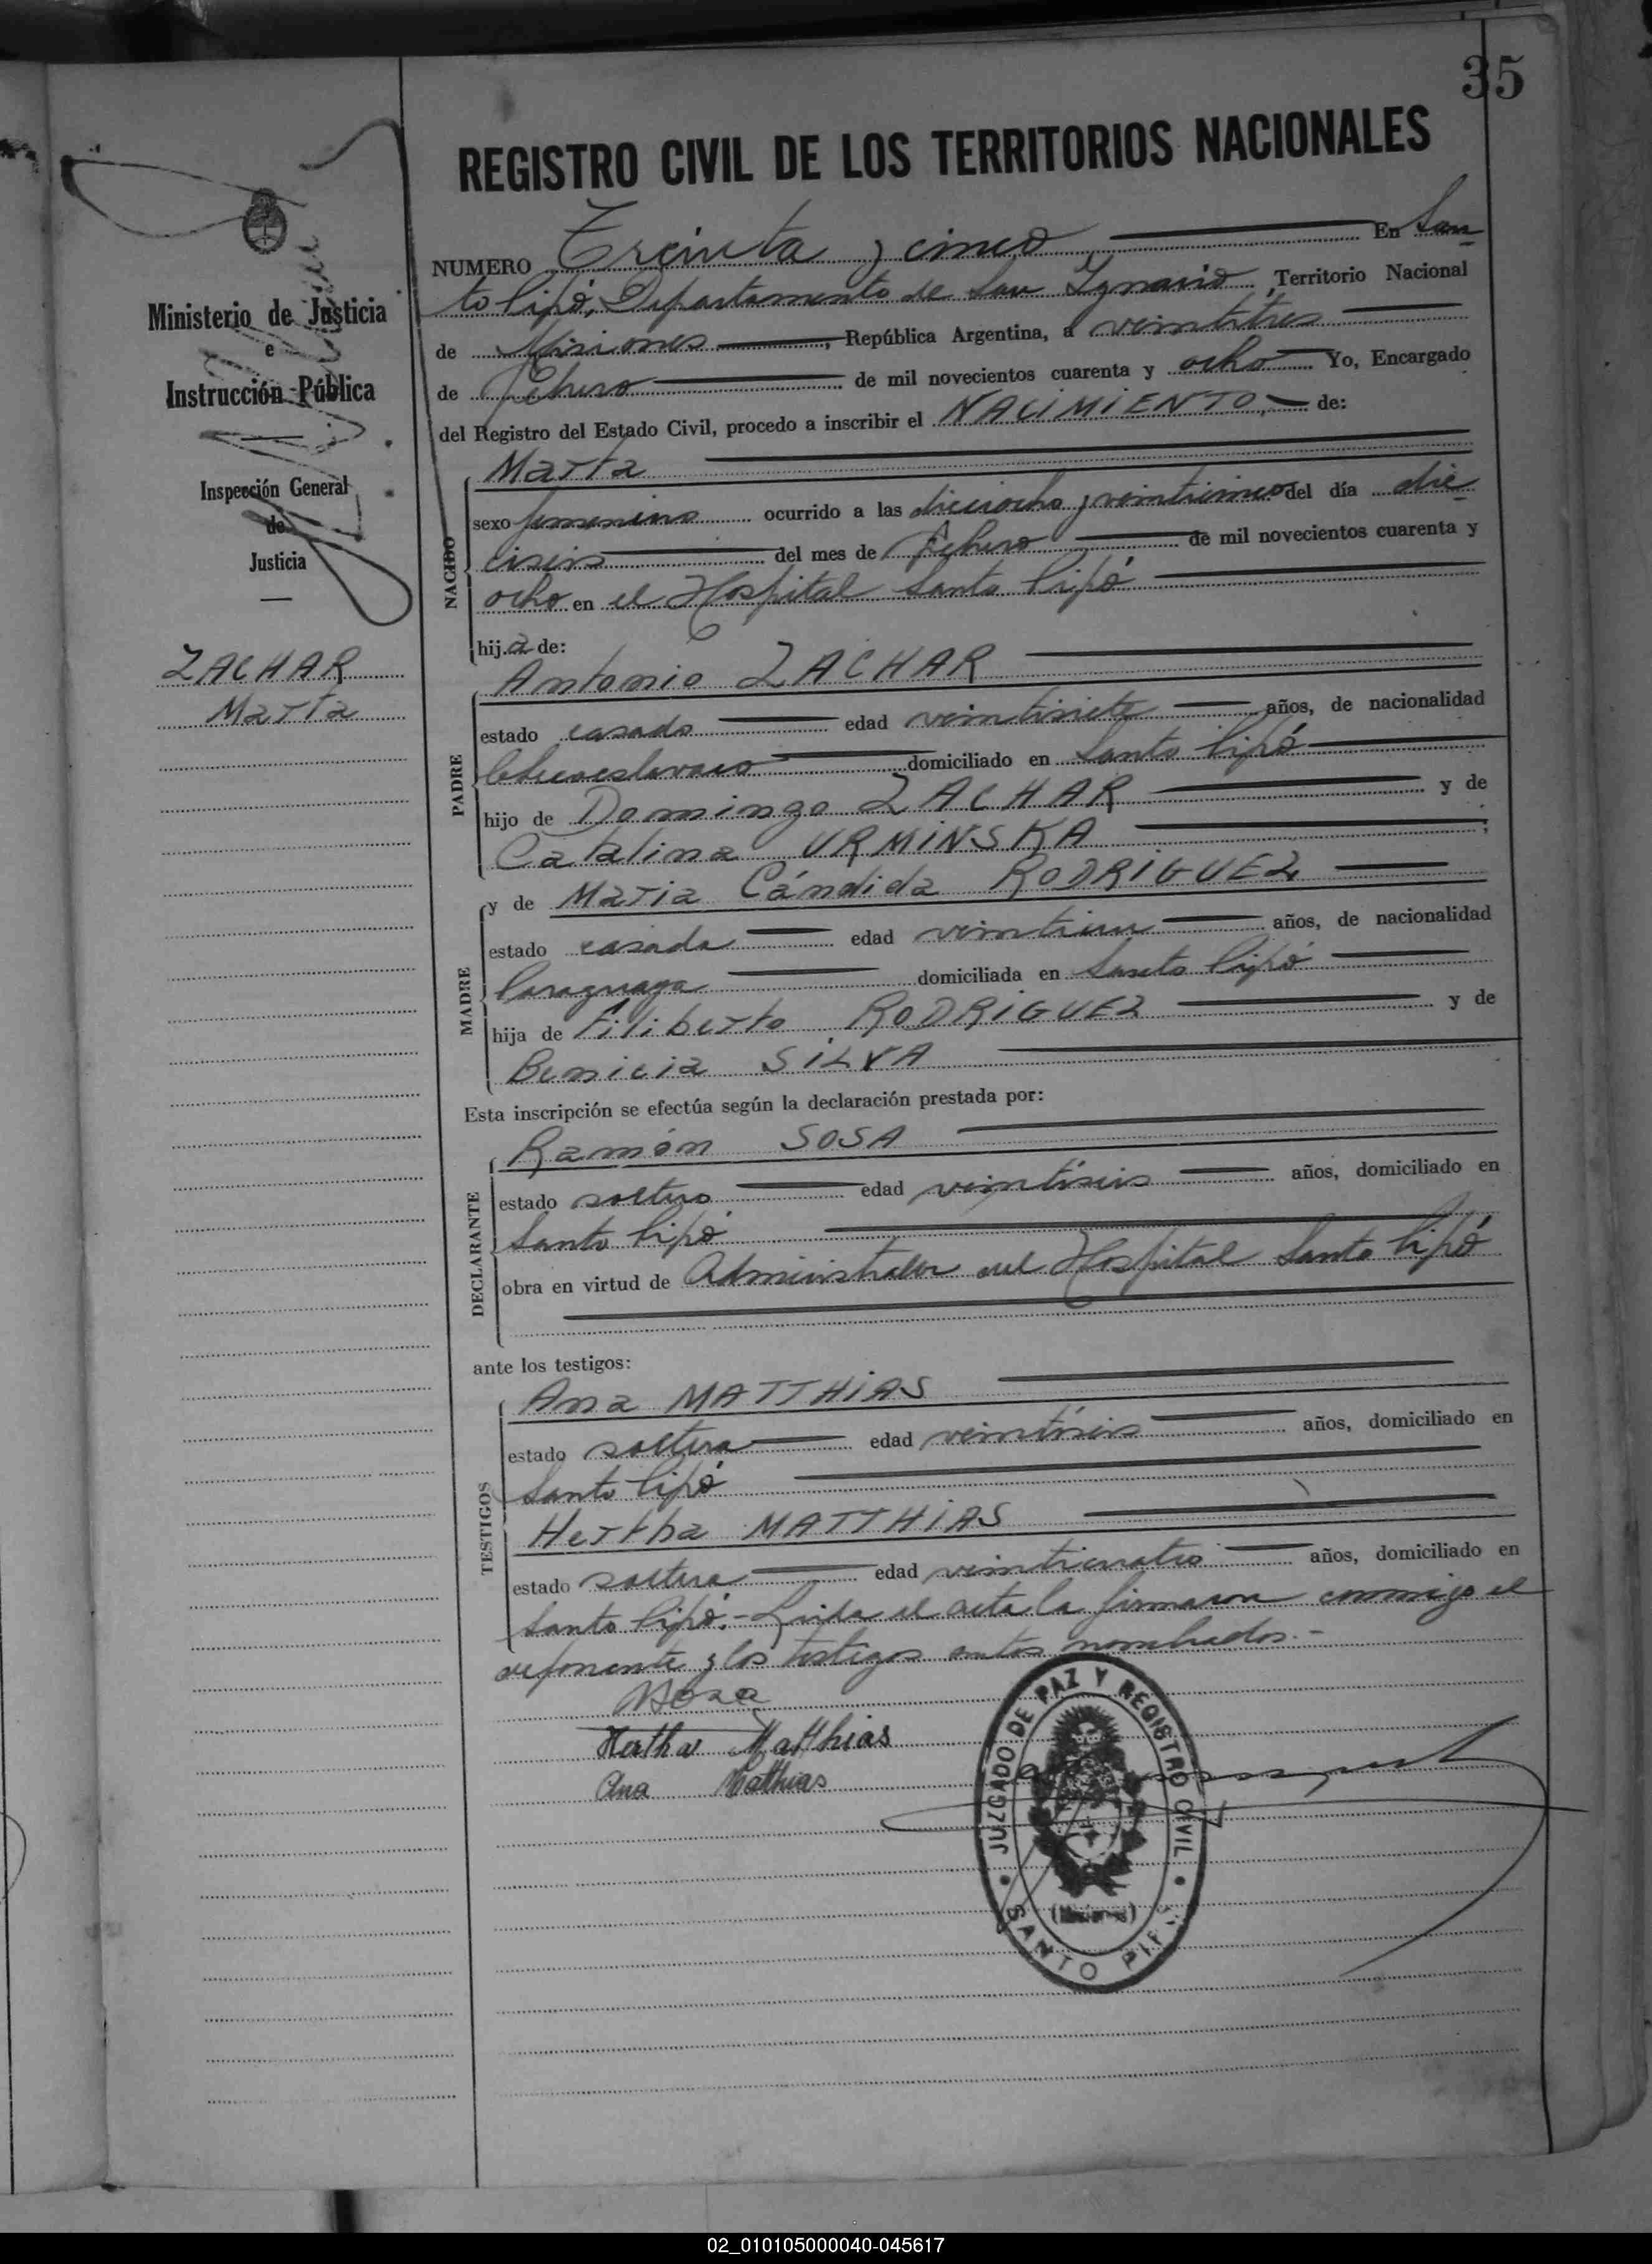 35
REGISTRO CIVIL DE LOS TERRITORIOS NACIONALES
Ministerio de Justicia
e
Instrucción Pública
Inspección General
de
Justicia
ZACHAR
Marta
NUMERO Treinta y cinco En San-
to Pipó, Departamento de San Ignacio, Territorio Nacional
de Misiones, República Argentina, a veintitres
de Febrero de mil novecientos cuarenta y ocho Yo, Encargado
del Registro del Estado Civil, procedo a inscribir el NACIMIENTO, de:
NACIDO
Marta
sexo femenino ocurrido a las dieciocho y veinticinco del día die-
ciseis del mes de Febrero de mil novecientos cuarenta y
ocho en el Hospital Santo Pipó
hija de:
PADRE
Antonio ZACHAR
estado casado edad veintisiete años, de nacionalidad
domiciliado en Santo Pipó
hijo de Domingo ZACHAR y de
Catalina URMINSKA;
MADRE
y de Maria Cándida RODRIGUEZ
estado casada edad veintiun años, de nacionalidad
Paraguaya domiciliada en Santo Pipó
hija de Filiberto RODRIGUEZ y de
Benicia SILVA
Esta inscripción se efectúa según la declaración prestada por:
DECLARANTE
Ramón SOSA
estado soltero edad veintiseis años, domiciliado en
Santo Pipó
obra en virtud de Administrador del Hospital Santo Pipó
ante los testigos:
TESTIGOS
Ana MATTHIAS
estado soltera edad veintiseis años, domiciliado en
Santo Pipó
Hertha MATTHIAS
estado soltera edad veinticuatro años, domiciliado en
Santo Pipó.- Leida el acta la firmaron conmigo el
deponente y los testigos antes nombrados.-
Hertha Matthias
Ana Matthias
JUZGADO DE PAZ Y REGISTRO CIVIL
(Misiones)
SANTO PIPÓ
02_010105000040-045617